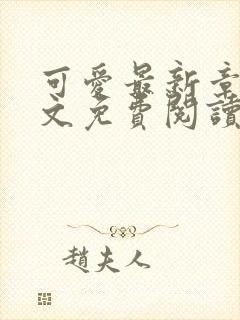 可愛最新章
文免費閱讀
趙夫人